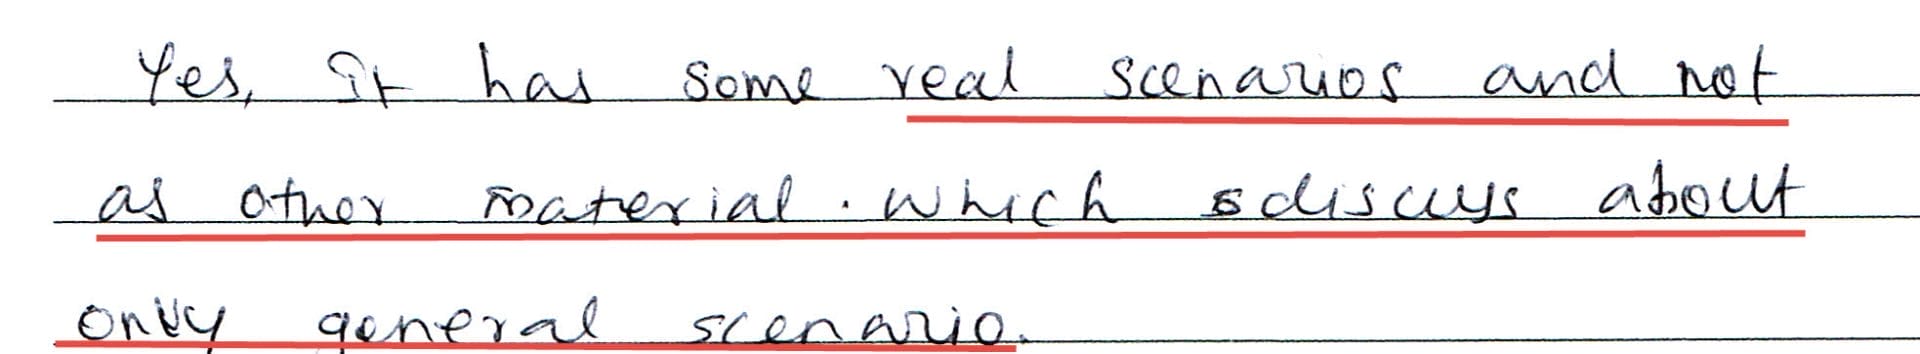 Yes, It has some real scenarios and not
as other material. which discuss about
only general scenario.